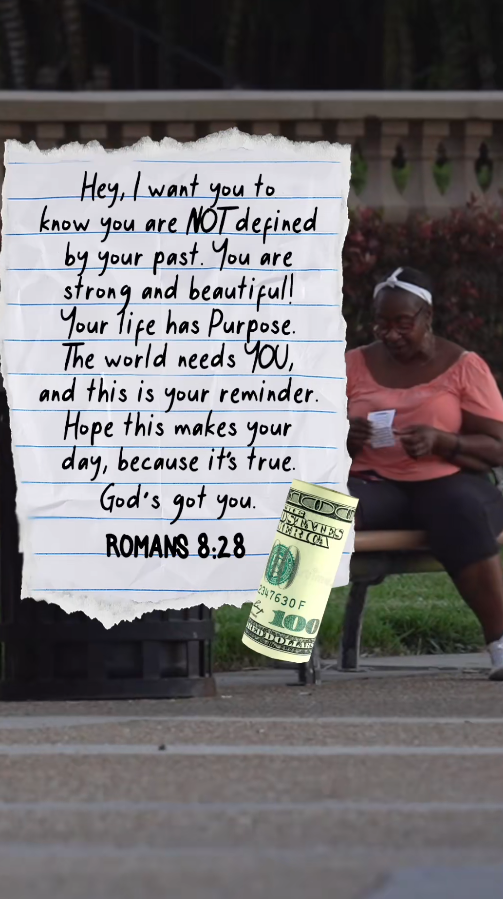 Hey, I want you to
know you are NOT defined
by your past. You are
strong and beautiful!
Your life has Purpose.
The world needs YOU,
and this is your reminder.
Hope this makes your
day, because it's true.
God's got you.
ROMANS 8:28
2347630F
100